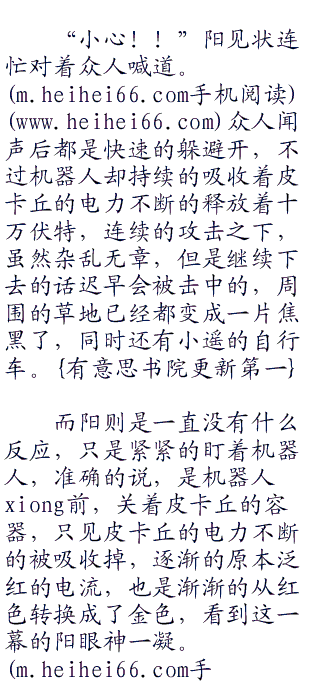 “小心！！”阳见状连
忙对着众人喊道。
(m.heihei66.com手机阅读)
(www.heihei66.com)众人闻
声后都是快速的躲避开，不
过机器人却持续的吸收着皮
卡丘的电力不断的释放着十
万伏特，连续的攻击之下，
虽然杂乱无章，但是继续下
去的话迟早会被击中的，周
围的草地已经都变成一片焦
黑了，同时还有小遥的自行
车。{有意思书院更新第一}
而阳则是一直没有什么
反应，只是紧紧的盯着机器
人，准确的说，是机器人
xiong前，关着皮卡丘的容
器，只见皮卡丘的电力不断
的被吸收掉，逐渐的原本泛
红的电流，也是渐渐的从红
色转换成了金色，看到这一
幕的阳眼神一凝。
(m.heihei66.com手